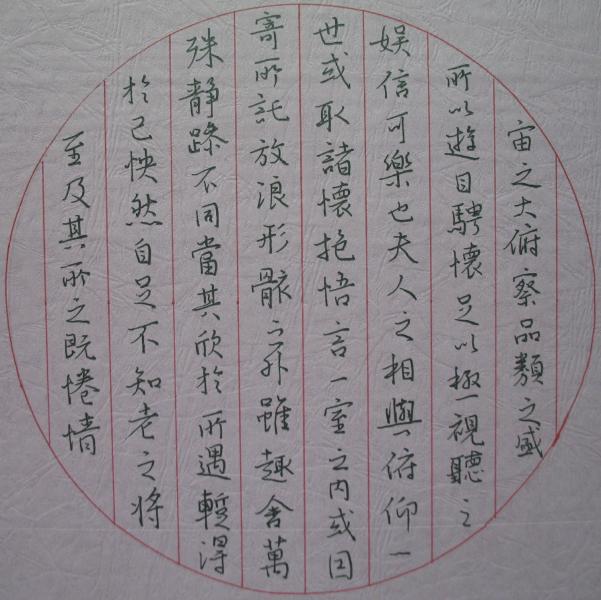 宙之大俯察品類之盛
所以遊目騁懷足以極視聽之
娛信可樂也夫人之相與俯仰一
世或取諸懷抱悟言一室之内或因
寄所託放浪形骸之外雖趣舍萬
殊靜躁不同當其欣於所遇暫得
於己怏然自足不知老之將
至及其所之既惓情